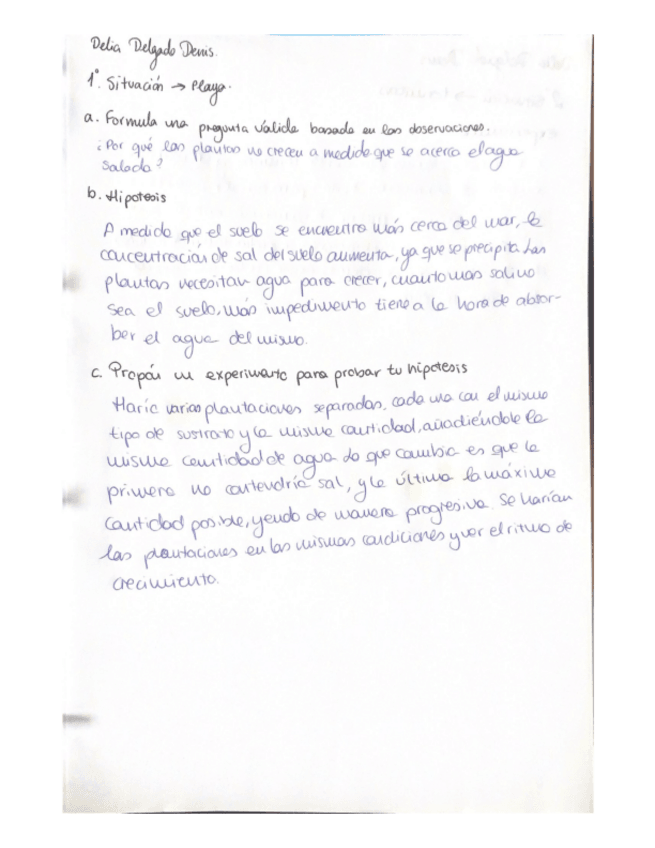 Delia Delgado Denis.
1º. Situación → Playa.
a. Formula una pregunta válida basada en las observaciones.
¿Por qué las plantas no crecen a medida que se acerca el agua
salada?
b. Hipotesis
A medida que el suelo se encuentra más cerca del mar, la
concentración de sal del suelo aumenta, ya que se precipita. Las
plantas necesitan agua para crecer, cuanto mas salino
sea el suelo, más impedimento tiene a la hora de absor-
ber el agua del mismo.
c. Propón un experimento para probar tu hipotesis
Haría varias plantaciones separadas, cada una con el mismo
tipo de sustrato y la misma cantidad, añadiéndole la
misma cantidad de agua. Lo que cambia es que la
primera no contendría sal, y la última la máxima
cantidad posible, yendo de manera progresiva. Se harían
las plantaciones en las mismas condiciones y ver el ritmo de
crecimiento.